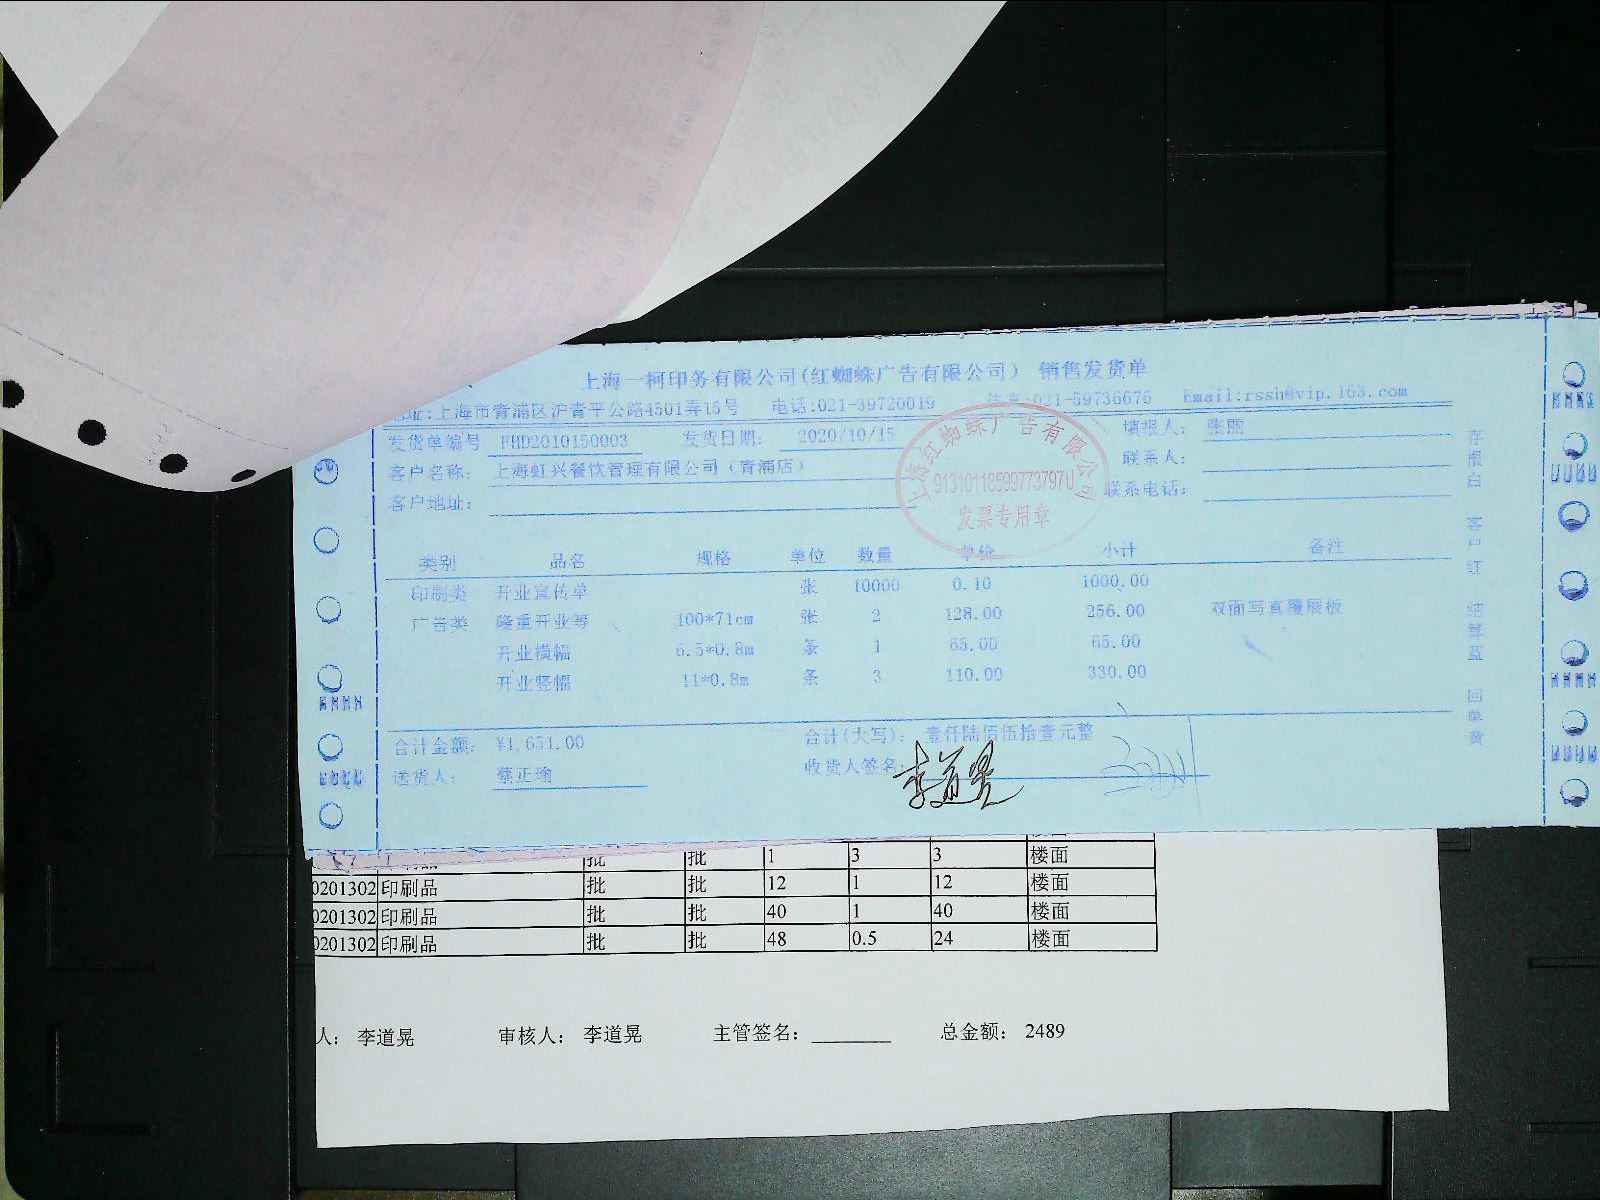 上海一柯印务有限公司(红蜘蛛广告有限公司) 销售发货单
地址:上海市青浦区沪青平公路4501弄15号 电话:021-39720019 传真:021-59736676 Email:rssh@vip.163.com
发货单编号 FHD2010150003 发货日期: 2020/10/15 填报人: 张丽
客户名称: 上海虹兴餐饮管理有限公司(青浦店) 联系人:
客户地址: 联系电话:
上海红蜘蛛广告有限公司
91310118599773797U
发票专用章
类别 品名 规格 单位 数量 单价 小计 备注
印刷类 开业宣传单 张 10000 0.10 1000.00
广告类 隆重开业等 100*71cm 张 2 128.00 256.00 双面写真覆展板
开业横幅 6.5*0.8m 条 1 65.00 65.00
开业竖幅 11*0.8m 条 3 110.00 330.00
合计金额: ¥1,651.00 合计(大写): 壹仟陆佰伍拾壹元整
送货人: 蔡正瑜 收货人签名: 李道晃
存根白 客户红 结算蓝 回单黄
批 批 1 3 3 楼面
0201302 印刷品 批 批 12 1 12 楼面
0201302 印刷品 批 批 40 1 40 楼面
0201302 印刷品 批 批 48 0.5 24 楼面
人: 李道晃 审核人: 李道晃 主管签名: 总金额: 2489